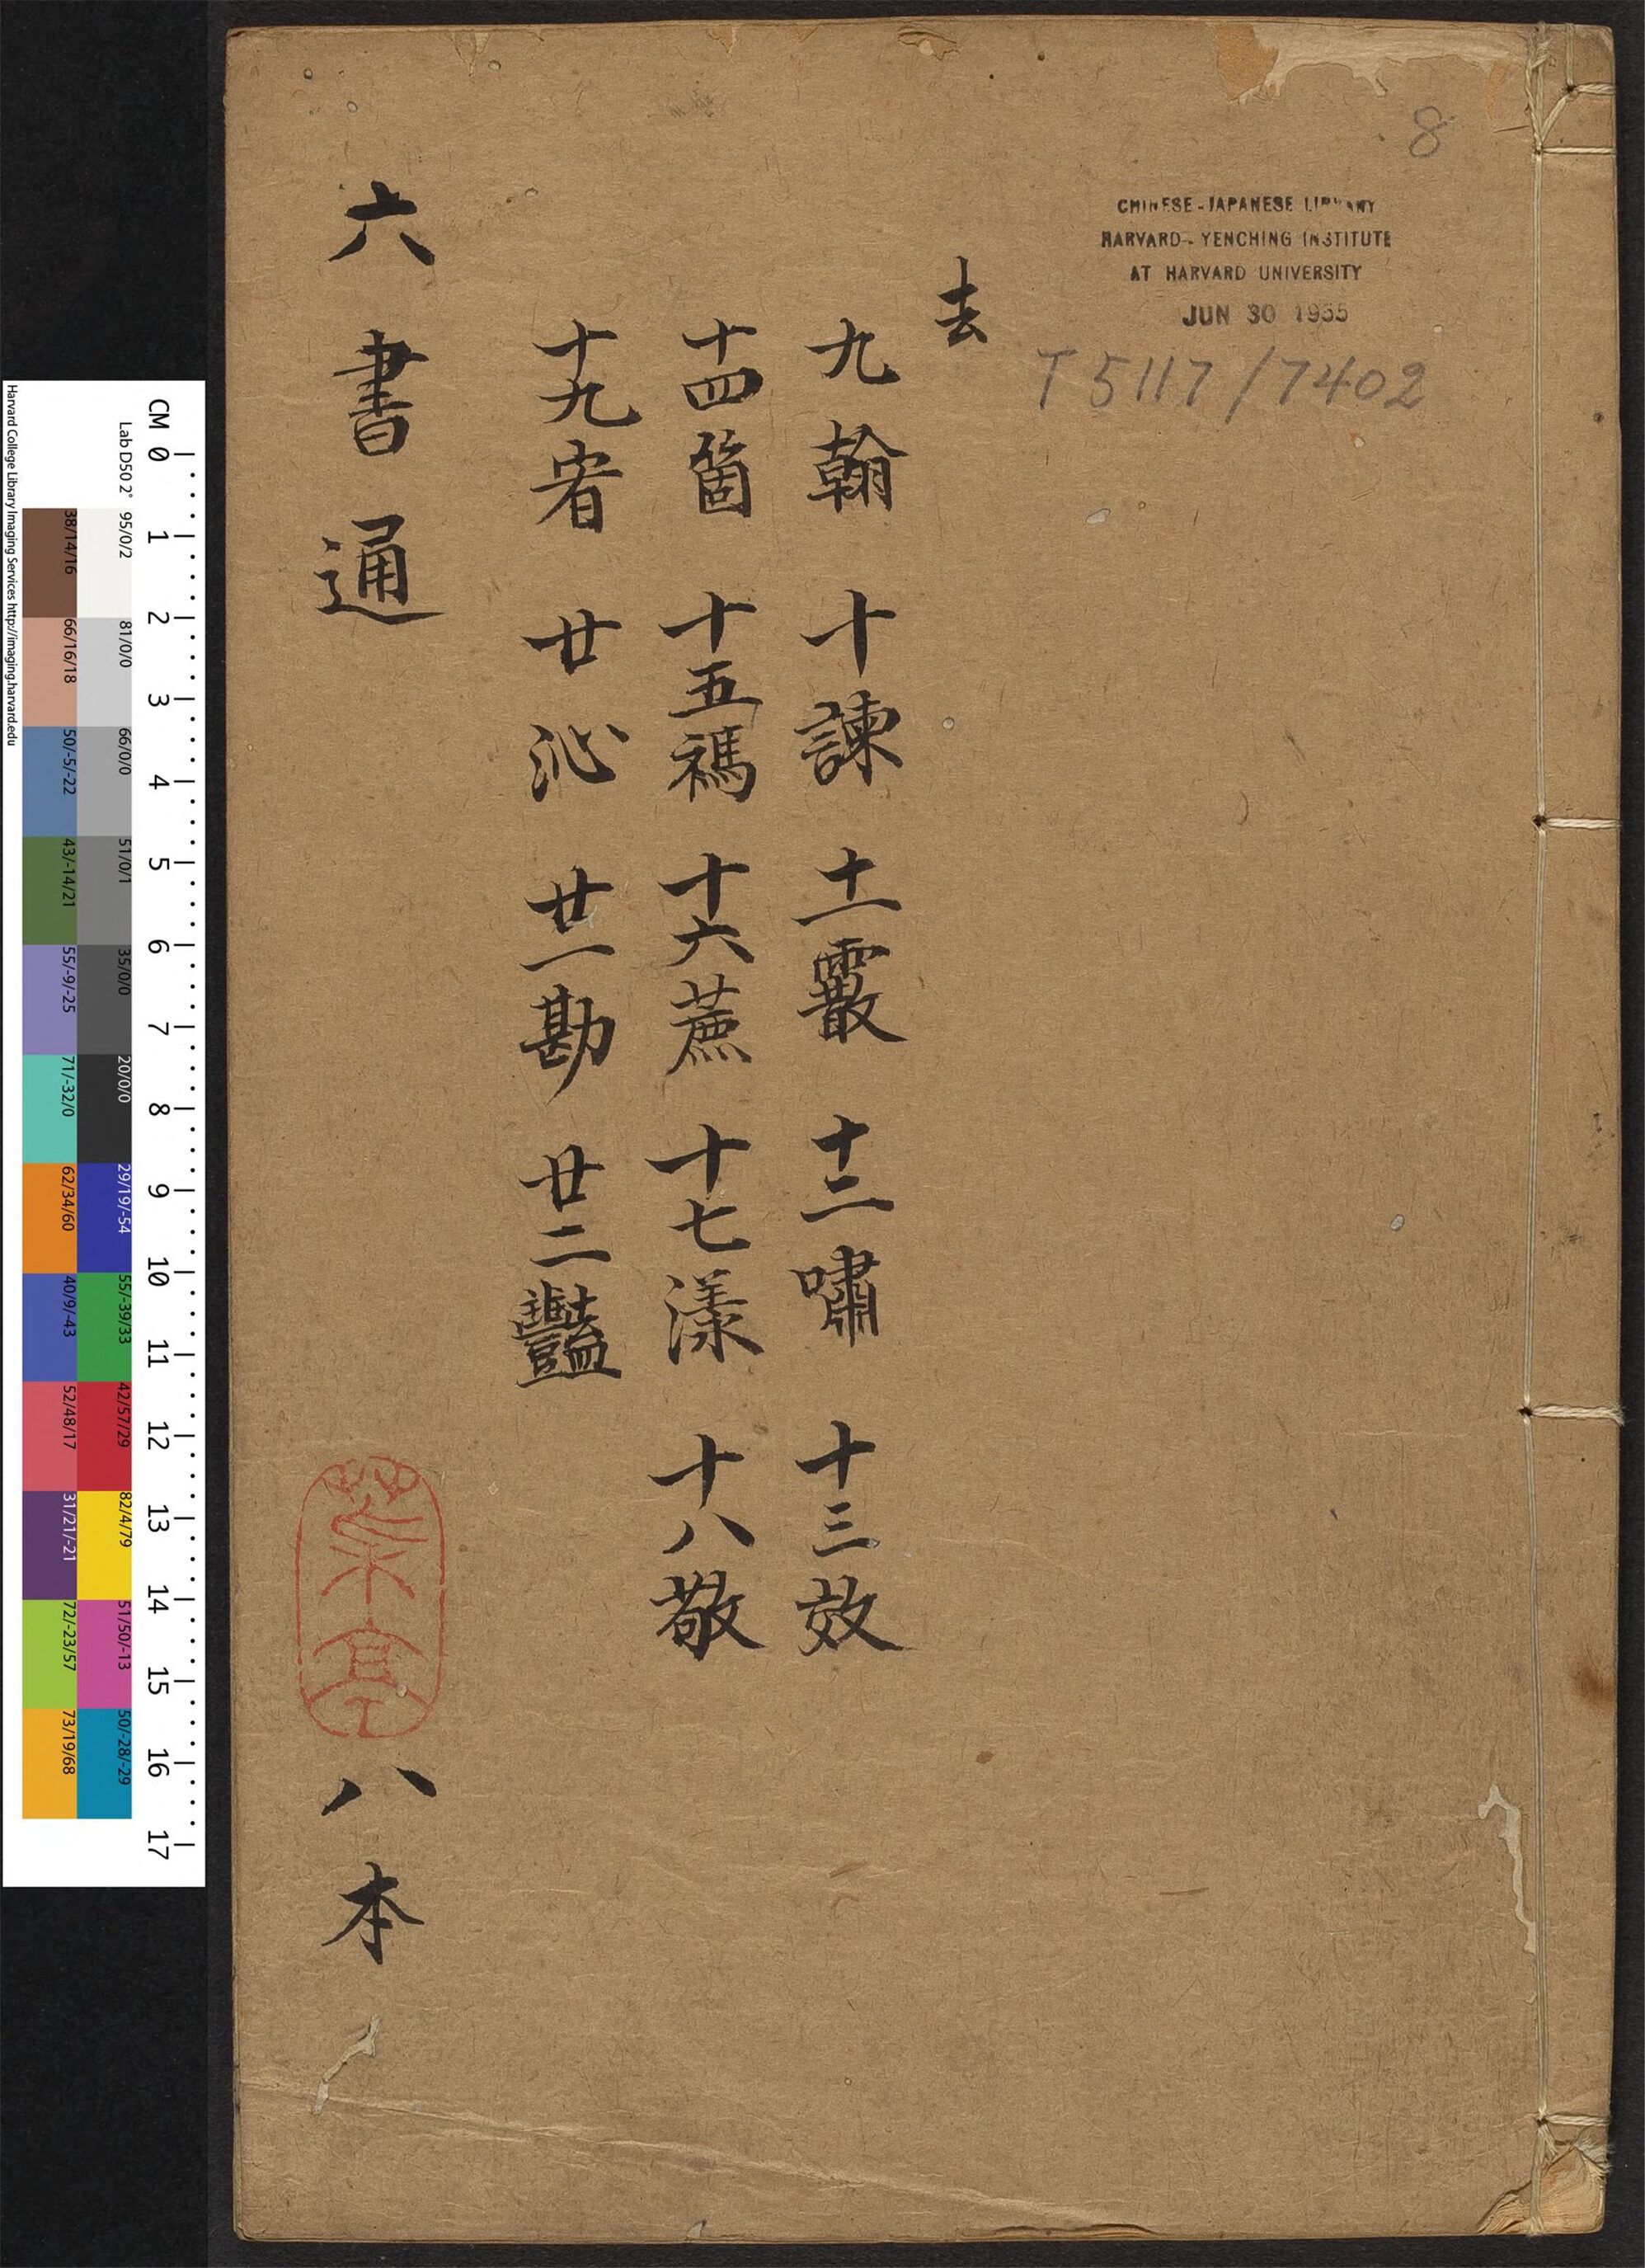 8
CHINESE-JAPANESE LIBRARY
HARVARD-YENCHING INSTITUTE
AT HARVARD UNIVERSITY
JUN 30 1955
T 5117 / 7402
去
九翰 十諫 十一霰 十二嘯 十三效
十四箇 十五禡 十六蔗 十七漾 十八敬
十九宥 廿沁 廿一勘 廿二豔
六書通
八本
CM 0 1 2 3 4 5 6 7 8 9 10 11 12 13 14 15 16 17
Lab D50 2° 95/0/2 81/0/0 66/0/0 51/0/1 35/0/0 20/0/0 29/19/-54 55/-39/33 42/57/29 82/4/79 51/50/-13 50/-28/-29
38/14/16 66/16/18 50/-5/-22 43/-14/21 55/-9/-25 71/-32/0 62/34/60 40/9/-43 52/48/17 31/21/-21 72/-23/57 73/19/68
Harvard College Library Imaging Services http://imaging.harvard.edu